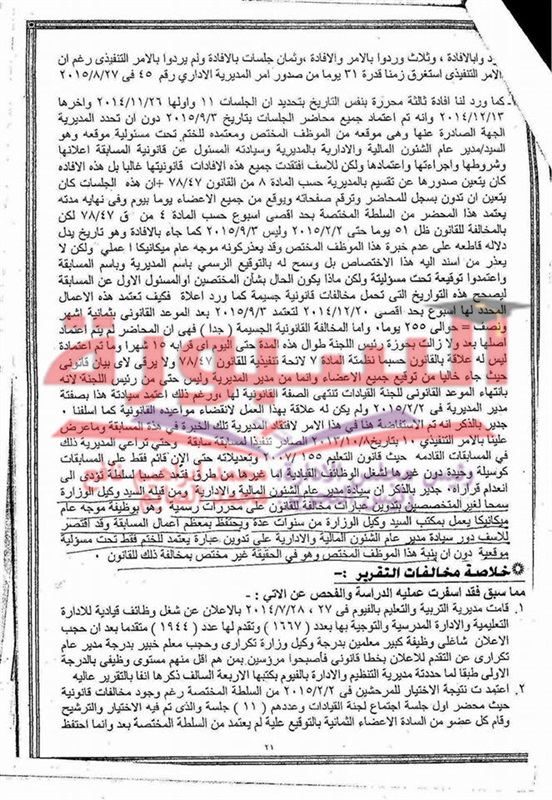 ورد وابالافادة ، وثلاث وردوا بالامر والافادة ،وثمان جلسات بالافادة ولم يردوا بالامر التنفيذى رغم ان
الامر التنفيذى استغرق زمنا قدرة ٣١ يوما من صدور امر المديرية الادارى رقم ٤٥ فى ٢٠١٥/٨/٢٧
كما ورد لنا افادة ثالثة محررة بنفس التاريخ بتحديد ان الجلسات ١١ واولها ٢٠١٤/١١/٢٦ واخرها
٢٠١٤/١٢/١٣ وانه تم اعتماد جميع محاضر الجلسات بتاريخ ٢٠١٥/٩/٣ دون ان تحدد المديرية
الجهة الصادرة عنها وهى موقعه من الموظف المختص ومعتمده للختم تحت مسئولية موقعه وهو
السيد/مدير عام الشئون المالية والادارية بالمديرية وسيادته المسئول عن قانونية المسابقة اعلانها
وشروطها واجراءتها واعتمادها ولكن للاسف افتقدت جميع هذه الافادات قانونيتها غالبا بل هذه الافاده
كان يتعين صدورها عن تقسيم بالمديرية حسب المادة ٨ من القانون ٧٨/٤٧ +ان هذه الجلسات كان
يتعين ان تدون بسجل للمحاضر وترقم صفحاته ويوقع من جميع الاعضاء يوما بيوم وفى نهاية مدته
يعتمد هذا المحضر من السلطة المختصة بحد اقصى اسبوع حسب المادة ٤ من ق ٧٨/٤٧ لكن
بالمخالفة للقانون ظل ٥١ يوما حتى ٢٠١٥/٢/٢ وليس ٢٠١٥/٩/٣ كما جاء بالافادة وهو تاريخ يدل
دلاله قاطعه على عدم خبرة هذا الموظف المختص وقد يعذركونه موجه عام ميكانيكا ا عملى ولكن لا
يعذر من اسند اليه هذا الاختصاص بل وسمح له بالتوقيع الرسمي باسم المديرية وباسم المسابقة
واعتمدوا توقيعة تحت مسؤليتة ولكن ماذا يكون الحال بشأن المختصين اوالمسئول الاول عن المسابقة
ليصحح هذه التواريخ التى تحمل مخالفات قانونية جسيمة كما ورد اعلاة فكيف تعتمد هذه الاعمال
المحدد لها اسبوع بحد اقصى ٢٠١٤/١٢/٢٠ لتعتمد ٢٠١٥/٩/٣ بعد الموعد القانونى بثمانية اشهر
ونصف = حوالى ٢٥٥ يوما، واما المخالفة القانونية الجسيمة ( جدا ) فهى ان المحاضر لم يتم اعتماد
اصلها بعد ولا زالت بحوزة رئيس اللجنة طوال هذه المدة حتى اليوم اى قرابه ١٥ شهرا وما تم اعتمادة
ليس له علاقة بالقانون حسبما نظمتة المادة ٧ لائحة تنفيذية للقانون ٧٨/٤٧ ولا يرقى لاى بيان قانونى
حيث جاء خاليا من توقيع جميع الاعضاء وانما من مدير المديرية وليس حتى من رئيس اللجنة لانه
بانتهاء الموعد القانونى للجنة القيادات تنتهى الصفة القانونية لها ،ورغم ذلك اعتمد سيادتة هذا بصفتة
مدير المديرية فى ٢٠١٥/٢/٢ ولم يكن له علاقة بهذا العمل لانقضاء مواعيده القانونية كما اسلفنا ٠
جدير بالذكر انه تم الاستفاضة هنا في هذا الامر لافتقاد المديرية تلك الخبرة فى هذه المسابقة وماعرض
علينا بالامر التنفيذى ١٠ بتاريخ ٢٠١٢/١٠/٨ الصادر تنفيذا لمسابقة سابقة وحتى تراعى المديرية ذلك
بالمسابقات القادمه حيث قانون التعليم ٢٠٠٧/١٥٥ وتعديلاته حتى الان قائم فقط على المسابقات
كوسيلة وحيدة دون غيرها لشغل الوظائف القيادية اما غيرها من طرق فتعد غصبا لسلطة تؤدى الى
انعدام قراراة، جدير بالذكر ان سيادة مدير عام الشئون المالية والادارية ومن قبله السيد وكيل الوزارة
سمحا لغير المتخصصين بتدوين عبارات مخالفة للقانون على محررات رسمية وهو بوظيفة موجه عام
ميكانيكا يعمل بمكتب السيد وكيل الوزارة من سنوات عدة ويحتفظ بمعظم اعمال المسابقة وقد اقتصر
للاسف دور سيادة مدير عام الشئون المالية والادارية على تدوين عبارة يعتمد للختم فقط تحت مسؤلية
موقعية دون ان ينبة هذا الموظف المختص وهو فى الحقيقة غير مختص بمخالفة ذلك للقانون ٠
خلاصة مخالفات التقرير :-
مما سبق فقد اسفرت عمليه الدراسة والفحص عن الاتي :-
١. قامت مديرية التربية والتعليم بالفيوم فى ٢٧ ، ٢٠١٤/٧/٢٨ بالاعلان عن شغل وظائف قيادية للادارة
التعليمية والادارة المدرسية والتوجية بها بعدد ( ١٦٦٧ ) وتقدم لها عدد ( ١٩٤٤ ) متقدما بعد ان حجب
الاعلان شاغلى وظيفة كبير معلمين بدرجة وكيل وزارة تكرارى وحجب معلم خبير بدرجة مدير عام
تكرارى عن التقدم للاعلان بخطا قانونى فأصبحوا مرؤسين بمن هم اقل منهم مستوى وظيفى بالدرجة
الاولى طبقا لما حددتة مديرية التنظيم والادارة بالفيوم بكتبها الاربعة السالف ذكرها انفا بالتقرير عاليه
٢. اعتمد ت نتيجة الاختيار للمرشحين فى ٢٠١٥/٢/٢ من السلطة المختصة رغم وجود مخالفات قانونية
حيث محضر اول جلسة اجتماع لجنة القيادات وعددهم ( ١١ ) جلسة والذى تم فيه الاختيار والترشيح
وقام كل عضو من السادة الاعضاء الثمانية بالتوقيع علية لم يعتمد من السلطة المختصة بعد وانما احتفظ
٢١